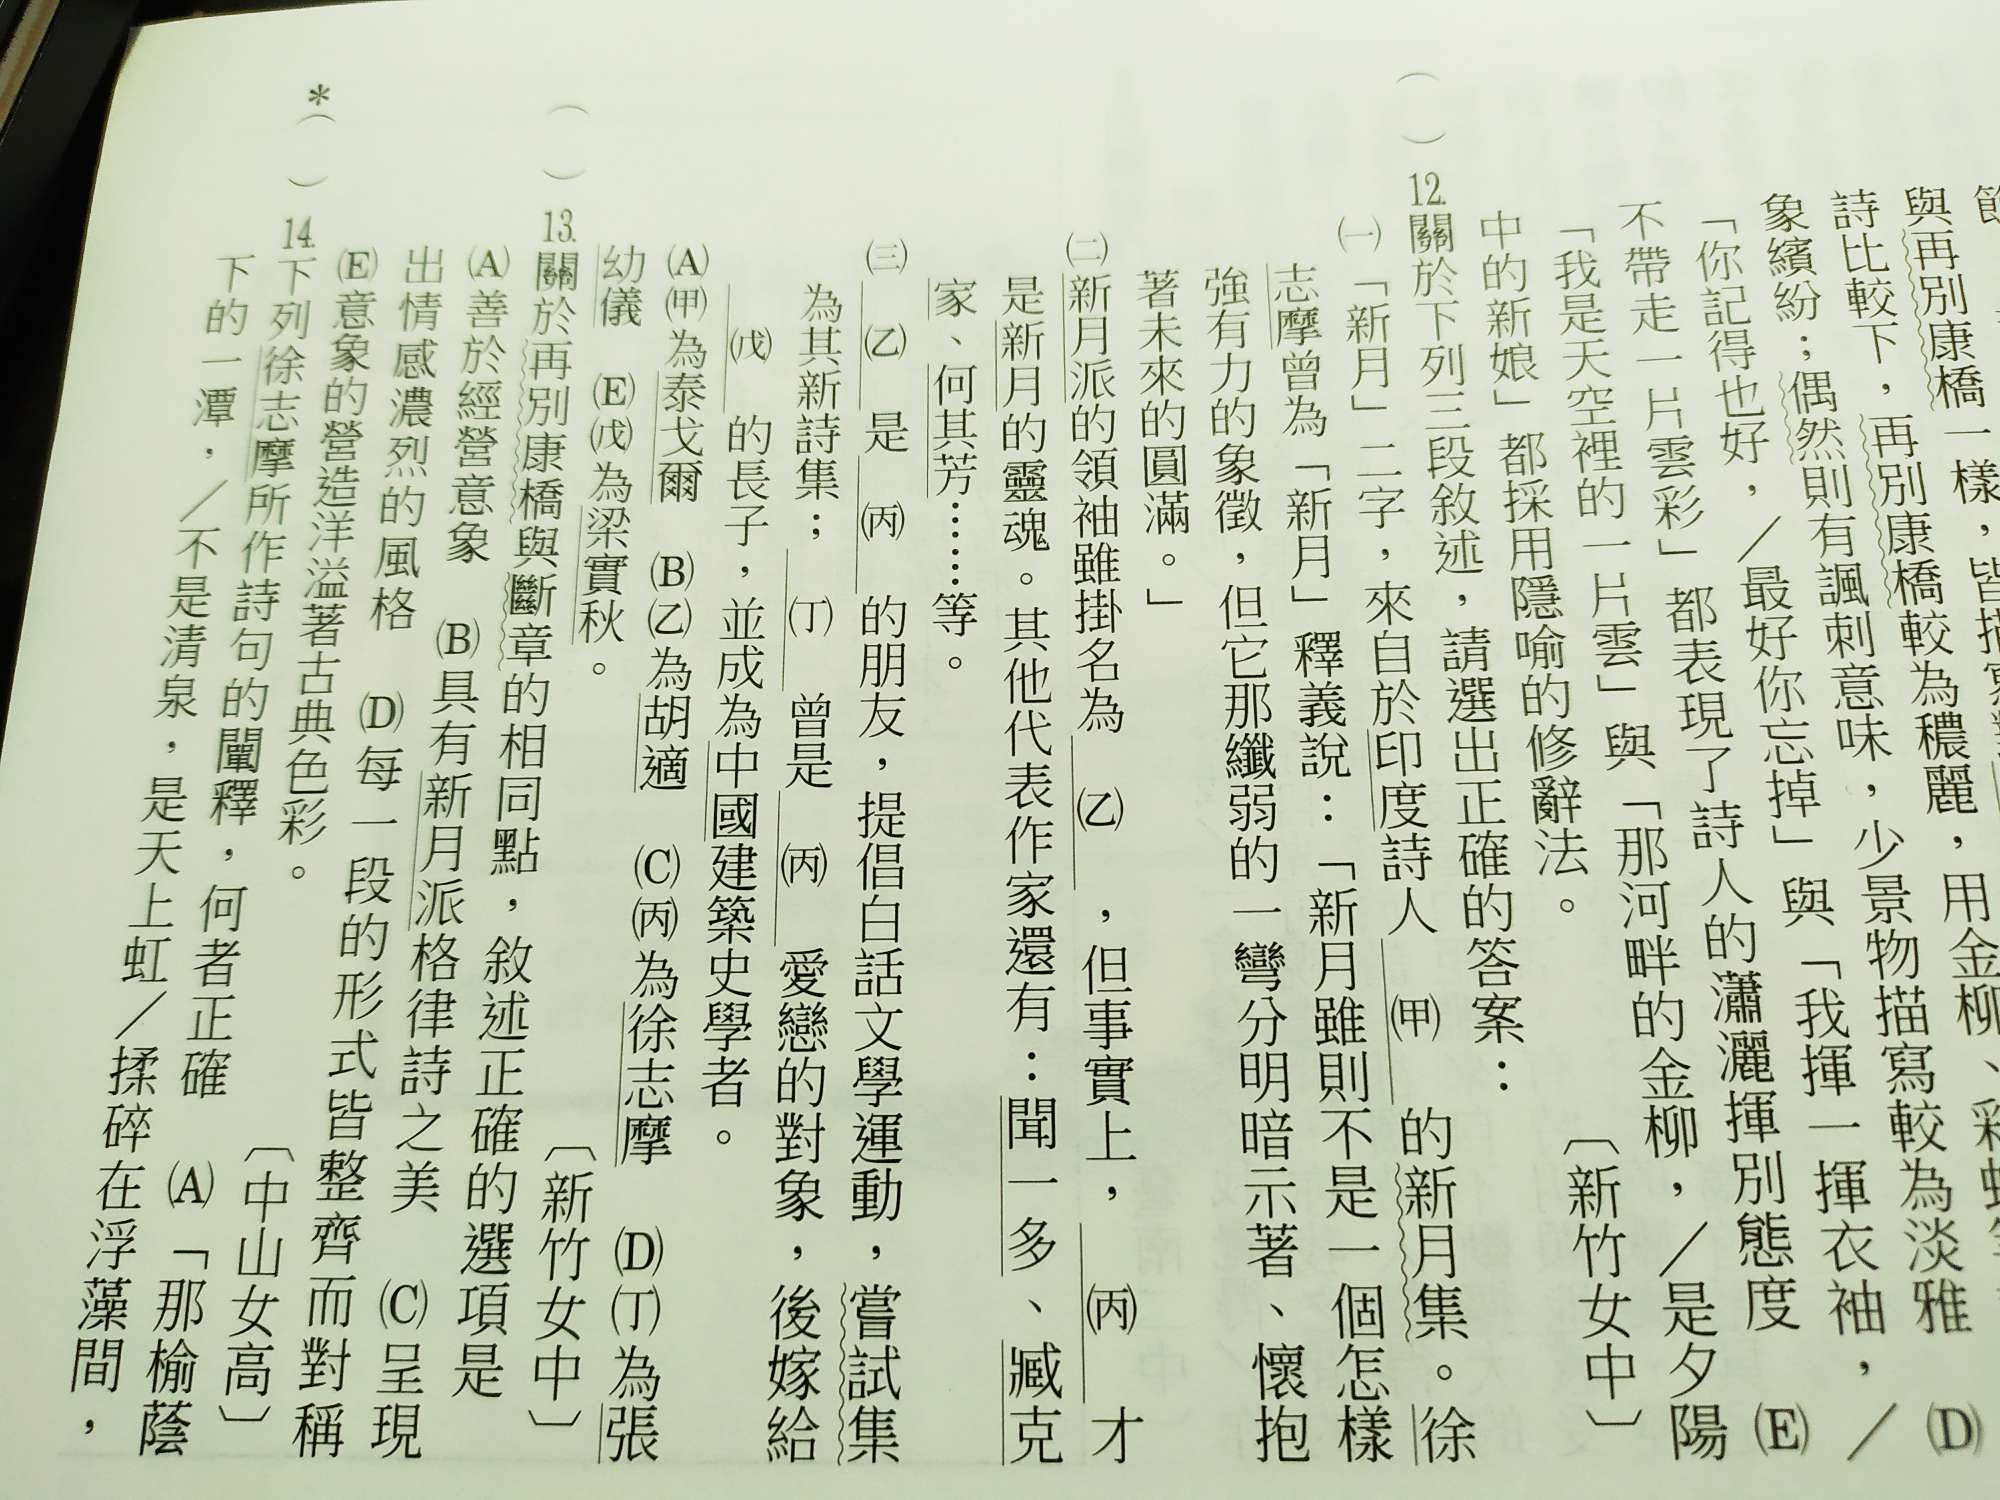 與再別康橋一樣，皆描寫
詩比較下，再別康橋較為穠麗，用金柳、彩
象繽紛；偶然則有諷刺意味，少景物描寫較為淡雅 (D)
「你記得也好，／最好你忘掉」與「我揮一揮衣袖，／
不帶走一片雲彩」都表現了詩人的瀟灑揮別態度 (E)
「我是天空裡的一片雲」與「那河畔的金柳，／是夕陽
中的新娘」都採用隱喻的修辭法。
( ) 12. 關於下列三段敘述，請選出正確的答案： 〔新竹女中〕
㈠「新月」二字，來自於印度詩人 ㈙ 的新月集。徐
志摩曾為「新月」釋義說：「新月雖則不是一個怎樣
強有力的象徵，但它那纖弱的一彎分明暗示著、懷抱
著未來的圓滿。」
㈡新月派的領袖雖掛名為 ㈚ ，但事實上， ㈛ 才
是新月的靈魂。其他代表作家還有：聞一多、臧克
家、何其芳……等。
㈢ ㈚ 是 ㈛ 的朋友，提倡白話文學運動，嘗試集
為其新詩集； ㈜ 曾是 ㈛ 愛戀的對象，後嫁給
㈝ 的長子，並成為中國建築史學者。
(A)㈙為泰戈爾 (B)㈚為胡適 (C)㈛為徐志摩 (D)㈜為張
幼儀 (E)㈝為梁實秋。
( ) 13. 關於再別康橋與斷章的相同點，敘述正確的選項是 〔新竹女中〕
(A)善於經營意象 (B)具有新月派格律詩之美 (C)呈現
出情感濃烈的風格 (D)每一段的形式皆整齊而對稱
(E)意象的營造洋溢著古典色彩。
*( ) 14. 下列徐志摩所作詩句的闡釋，何者正確 〔中山女高〕 (A)「那榆蔭
下的一潭，／不是清泉，是天上虹／揉碎在浮藻間，